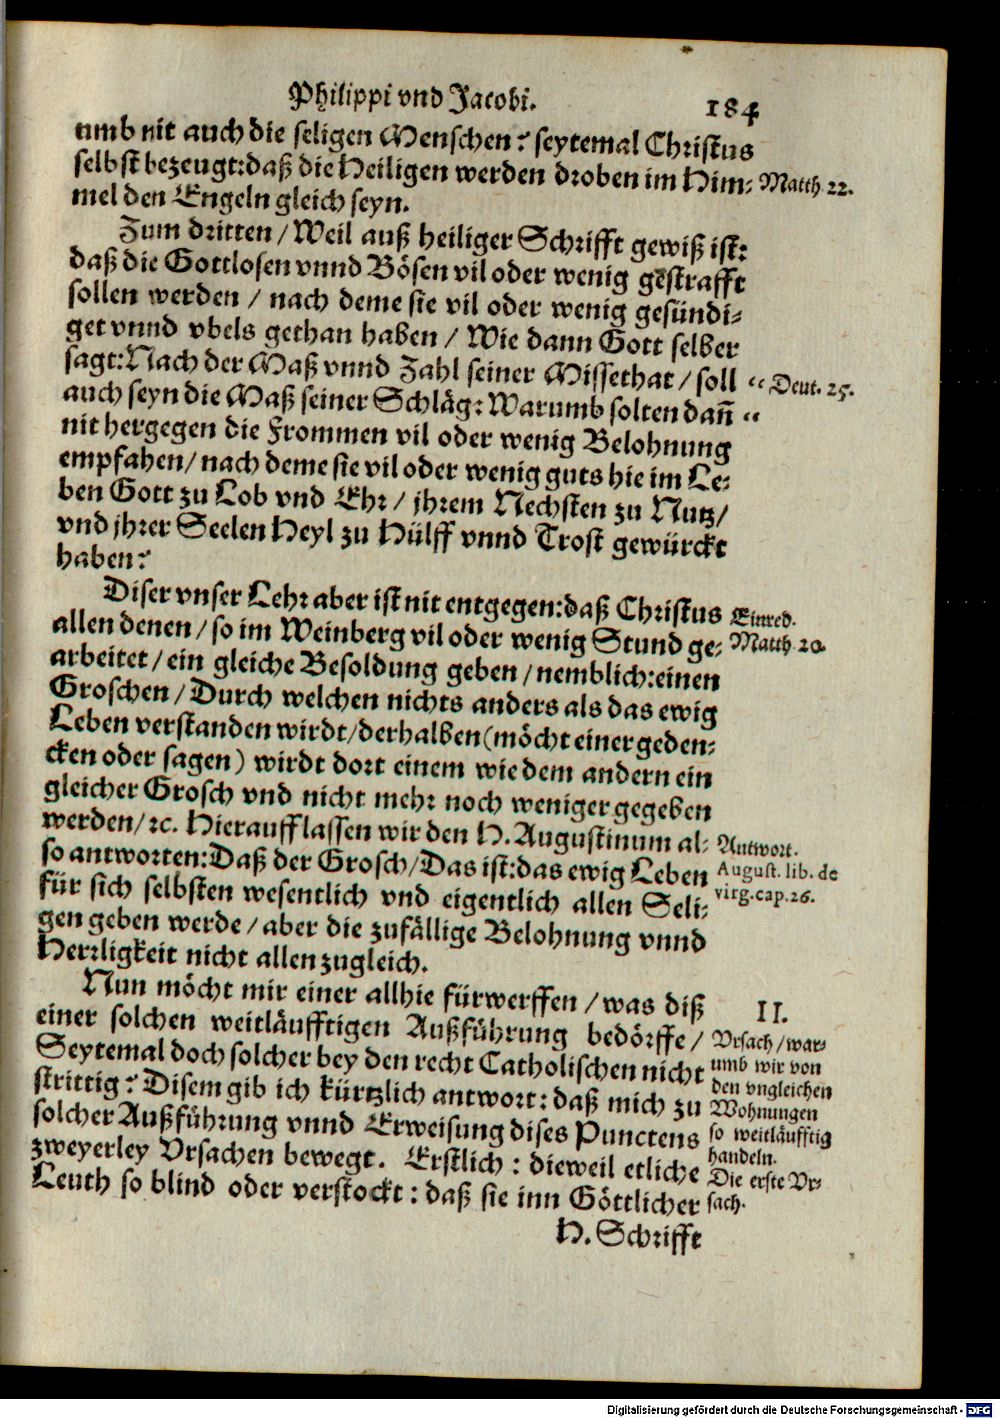 Philippi vnd Jacobi. 184
umb nit auch die seligen Menschen? seytemal Christus
selbst bezeugt: daß die Heiligen werden droben im Him- Matth. 22.
mel den Engeln gleich seyn.
Zum dritten / Weil auß heiliger Schrifft gewiß ist:
daß die Gottlosen vnnd Bösen vil oder wenig gestrafft
sollen werden / nach deme sie vil oder wenig gesündi-
get vnnd vbels gethan haben / Wie dann Gott selber
sagt: Nach der Maß vnnd Zahl seiner Missethat / soll “ Deut. 25.
auch seyn die Maß seiner Schläg: Warumb solten dañ “
nit hergegen die Frommen vil oder wenig Belohnung
empfahen / nach deme sie vil oder wenig guts hie im Le-
ben Gott zu Lob vnd Ehr / jhrem Nechsten zu Nutz /
vnd jhrer Seelen Heyl zu Hülff vnnd Trost gewürckt
haben?
Diser vnser Lehr aber ist nit entgegen: daß Christus Einred.
allen denen / so im Weinberg vil oder wenig Stund ge- Matth. 20.
arbeitet / ein gleiche Besoldung geben / nemblich: einen
Groschen / Durch welchen nichts anders als das ewig
Leben verstanden wirdt / derhalben (möcht einer geden-
cken oder sagen) wirdt dort einem wie dem andern ein
gleicher Grosch vnd nicht mehr noch weniger gegeben
werden / ꝛc. Hierauff lassen wir den H. Augustinum al- Antwort.
so antworten: Daß der Grosch / Das ist: das ewig Leben August. lib. de
für sich selbsten wesentlich vnd eigentlich allen Seli- virg. cap. 26.
gen geben werde / aber die zufällige Belohnung vnnd
Herrligkeit nicht allen zugleich.
Nun möcht mir einer allhie fürwerffen / was diß II.
einer solchen weitläufftigen Außführung bedörffe / Vrsach / war-
Seytemal doch solcher bey den recht Catholischen nicht umb wir von
strittig? Disem gib ich kürtzlich antwort: daß mich zu den vngleichen
Wohnungen
solcher Außführung vnnd Erweisung dises Punctens so weitläufftig
handeln.
zweyerley Vrsachen bewegt. Erstlich: dieweil etliche Die erste Vr-
Leuth so blind oder verstockt: daß sie inn Göttlicher sach.
H. Schrifft
Digitalisierung gefördert durch die Deutsche Forschungsgemeinschaft - DFG